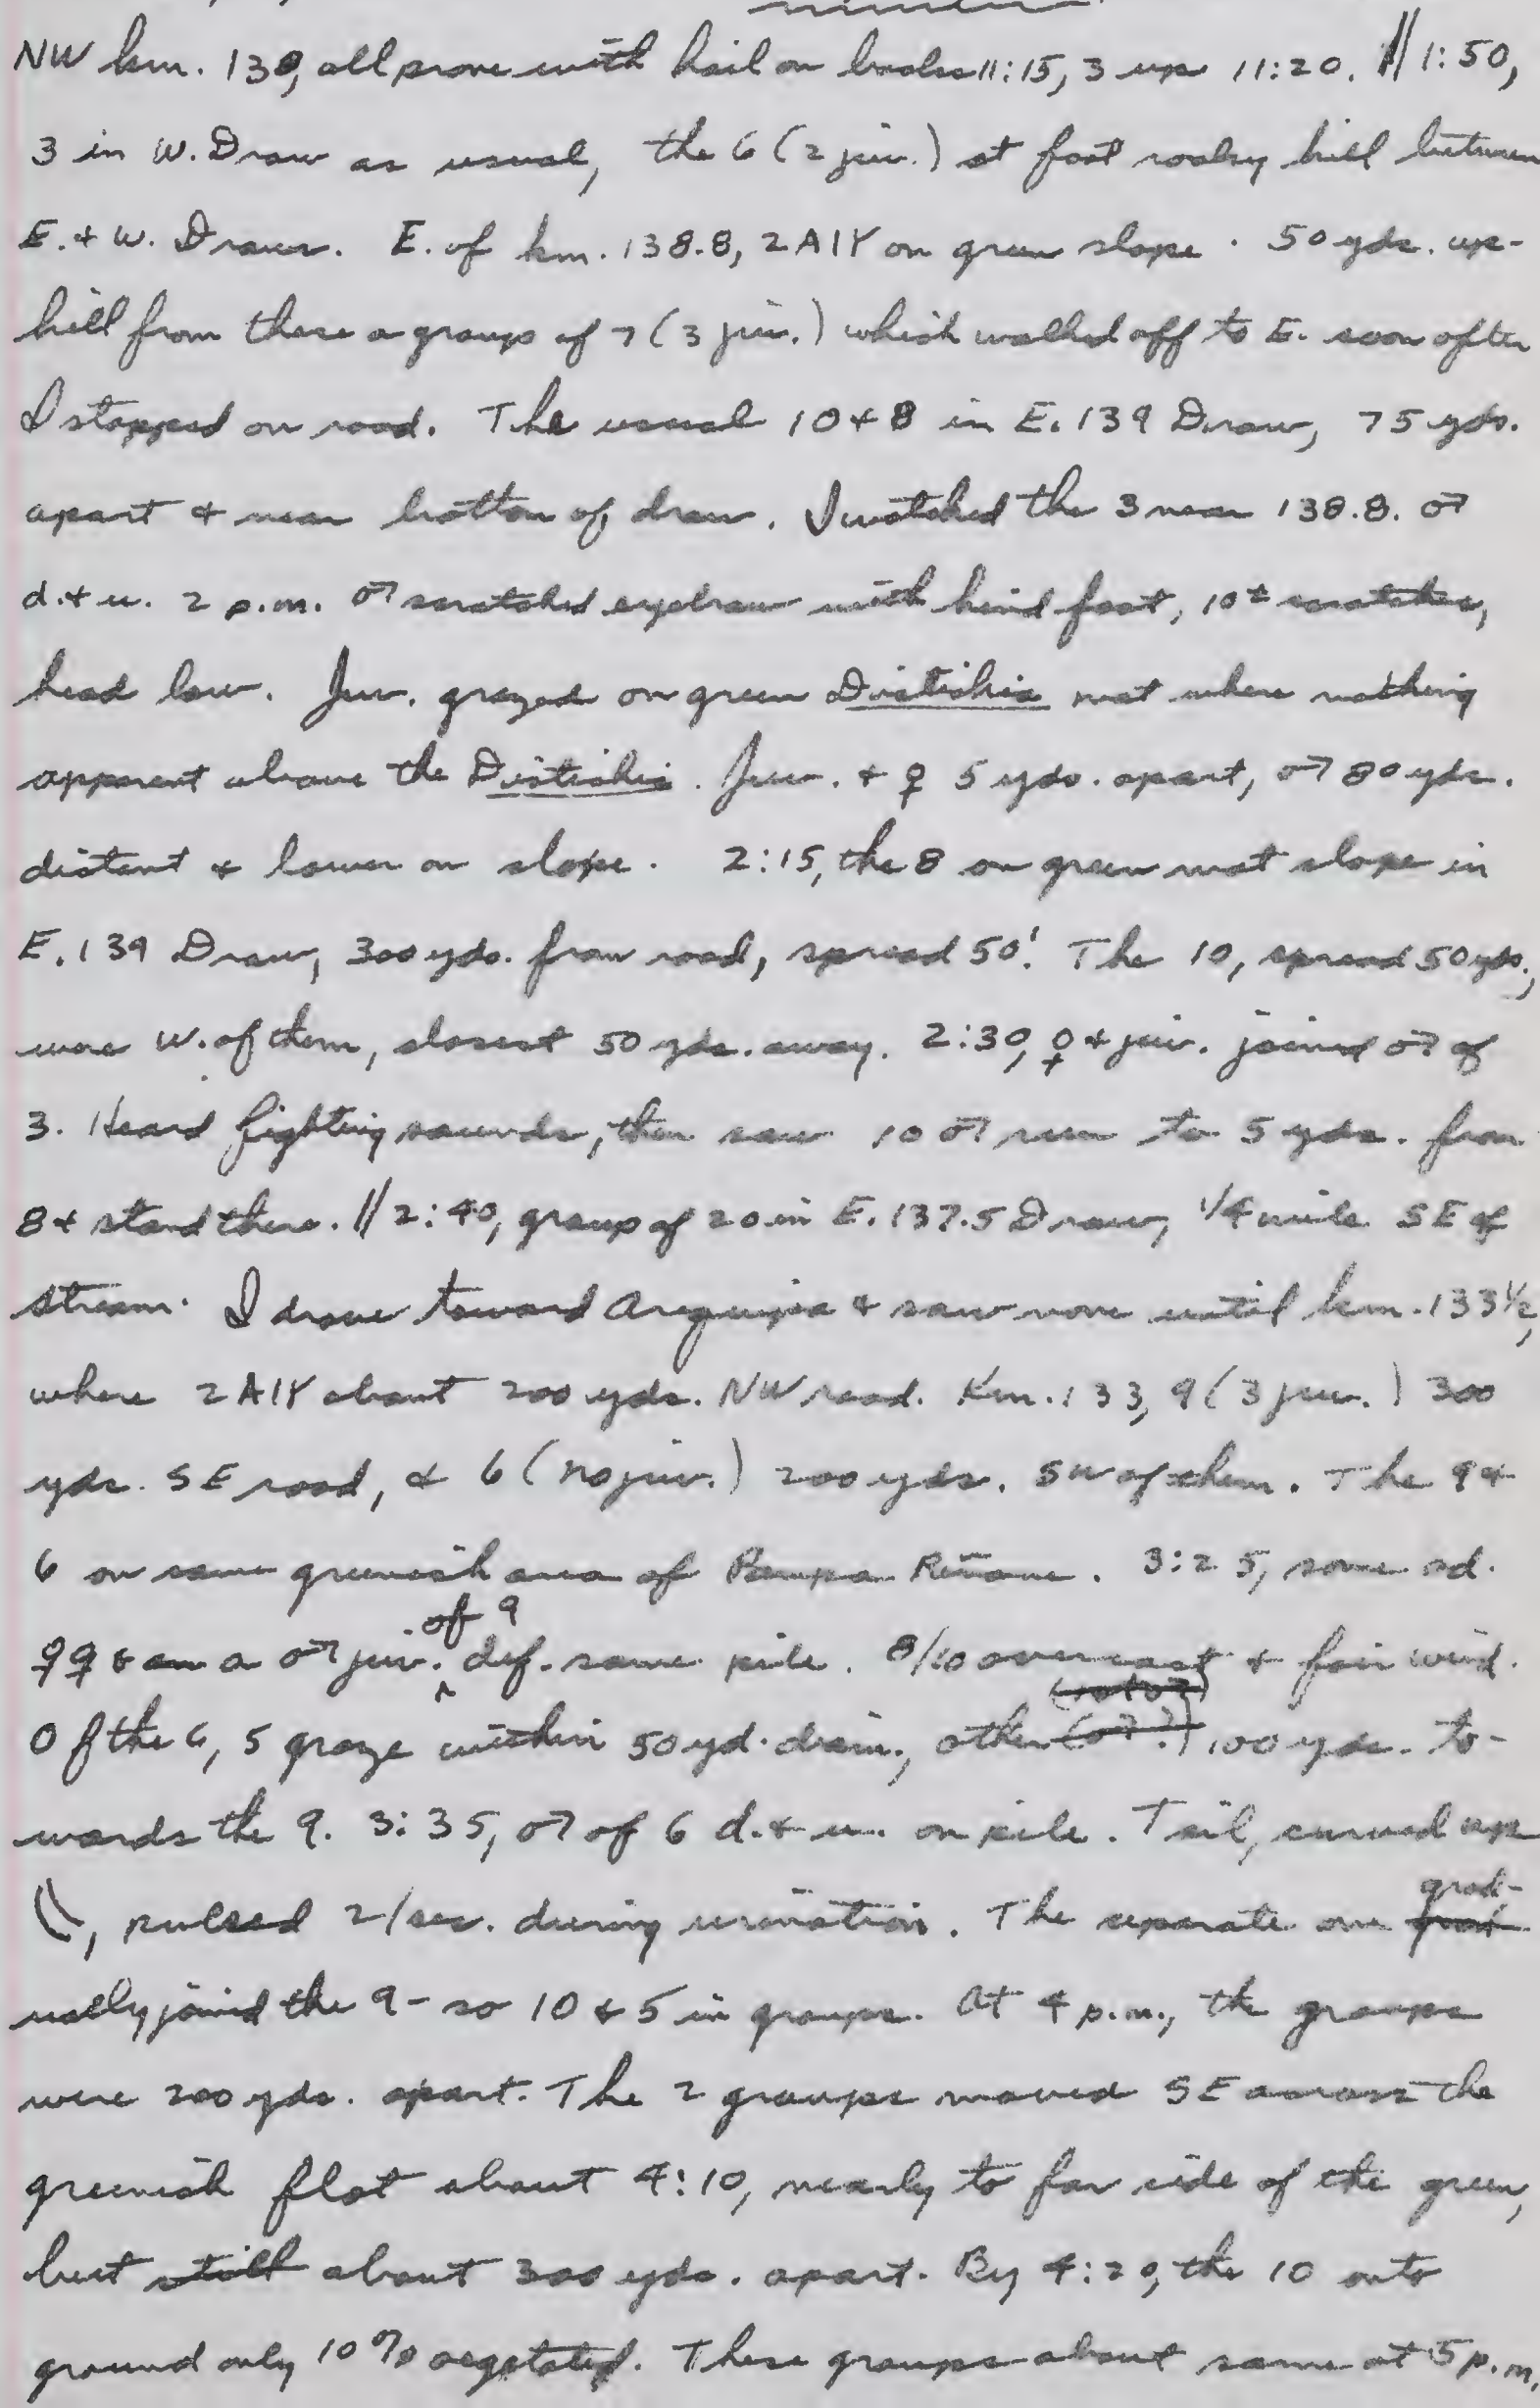 NW km. 138, all prone with hail on backs 11:15, 3 up 11:20. // 1:50,
3 in W. Draw as usual, the 6 (2 juv.) at foot rocky hill between
E. + W. Draws. E. of km. 138.8, 2A1Y on green slope. 50 yds. up-
hill from these a group of 7 (3 juv.) which walked off to E. soon after
I stopped on road. The usual 10 + 8 in E. 139 Draw, 75 yds.
apart + near bottom of draw. I watched the 3 near 138.8. ♂
d. + u. 2 p.m. ♂ scratched eyebrow with hind foot, 10± scratches,
head low. Juv. grazed on green Distichia mat where nothing
apparent above the Distichia. Juv. + ♀ 5 yds. apart, ♂ 80 yds.
distant + lower on slope. 2:15, the 8 on green mat slope in
E. 139 Draw, 300 yds. from road, spread 50'. The 10, spread 50 yds.,
were W. of them, closest 50 yds. away. 2:30, ♀ + juv. joined ♂ of
3. Heard fighting sounds, then saw 10 ♂ run to 5 yds. from
8 + stand there. // 2:40, group of 20 in E. 137.5 Draw, 1/4 mile SE of
stream. I drove toward Arequipa + saw none until km. 133 1/2,
where 2A1Y about 200 yds. NW road. Km. 133, 9 (3 juv.) 300
yds. SE road, + 6 (no juv.) 200 yds. SW of them. The 9 +
6 on same greenish area of Pampa. 3:25, some ad.
♀♀ + an a ♂ juv. of 9 def. same pile. 8/10 overcast + fair wind.
Of the 6, 5 graze within 50 yd. diam., other (♂?) 100 yds. to-
wards the 9. 3:35, ♂ of 6 d. + u. on pile. Tail, curved up
, pulsed 2/sec. during urination. The separate one grad-
ually joined the 9 - so 10 + 5 in groups. At 4 p.m., the groups
were 200 yds. apart. The 2 groups moved SE across the
greenish flat about 4:10, nearly to far side of the green,
but still about 300 yds. apart. By 4:20, the 10 onto
ground only 10% vegetated. These groups about same at 5 p.m.